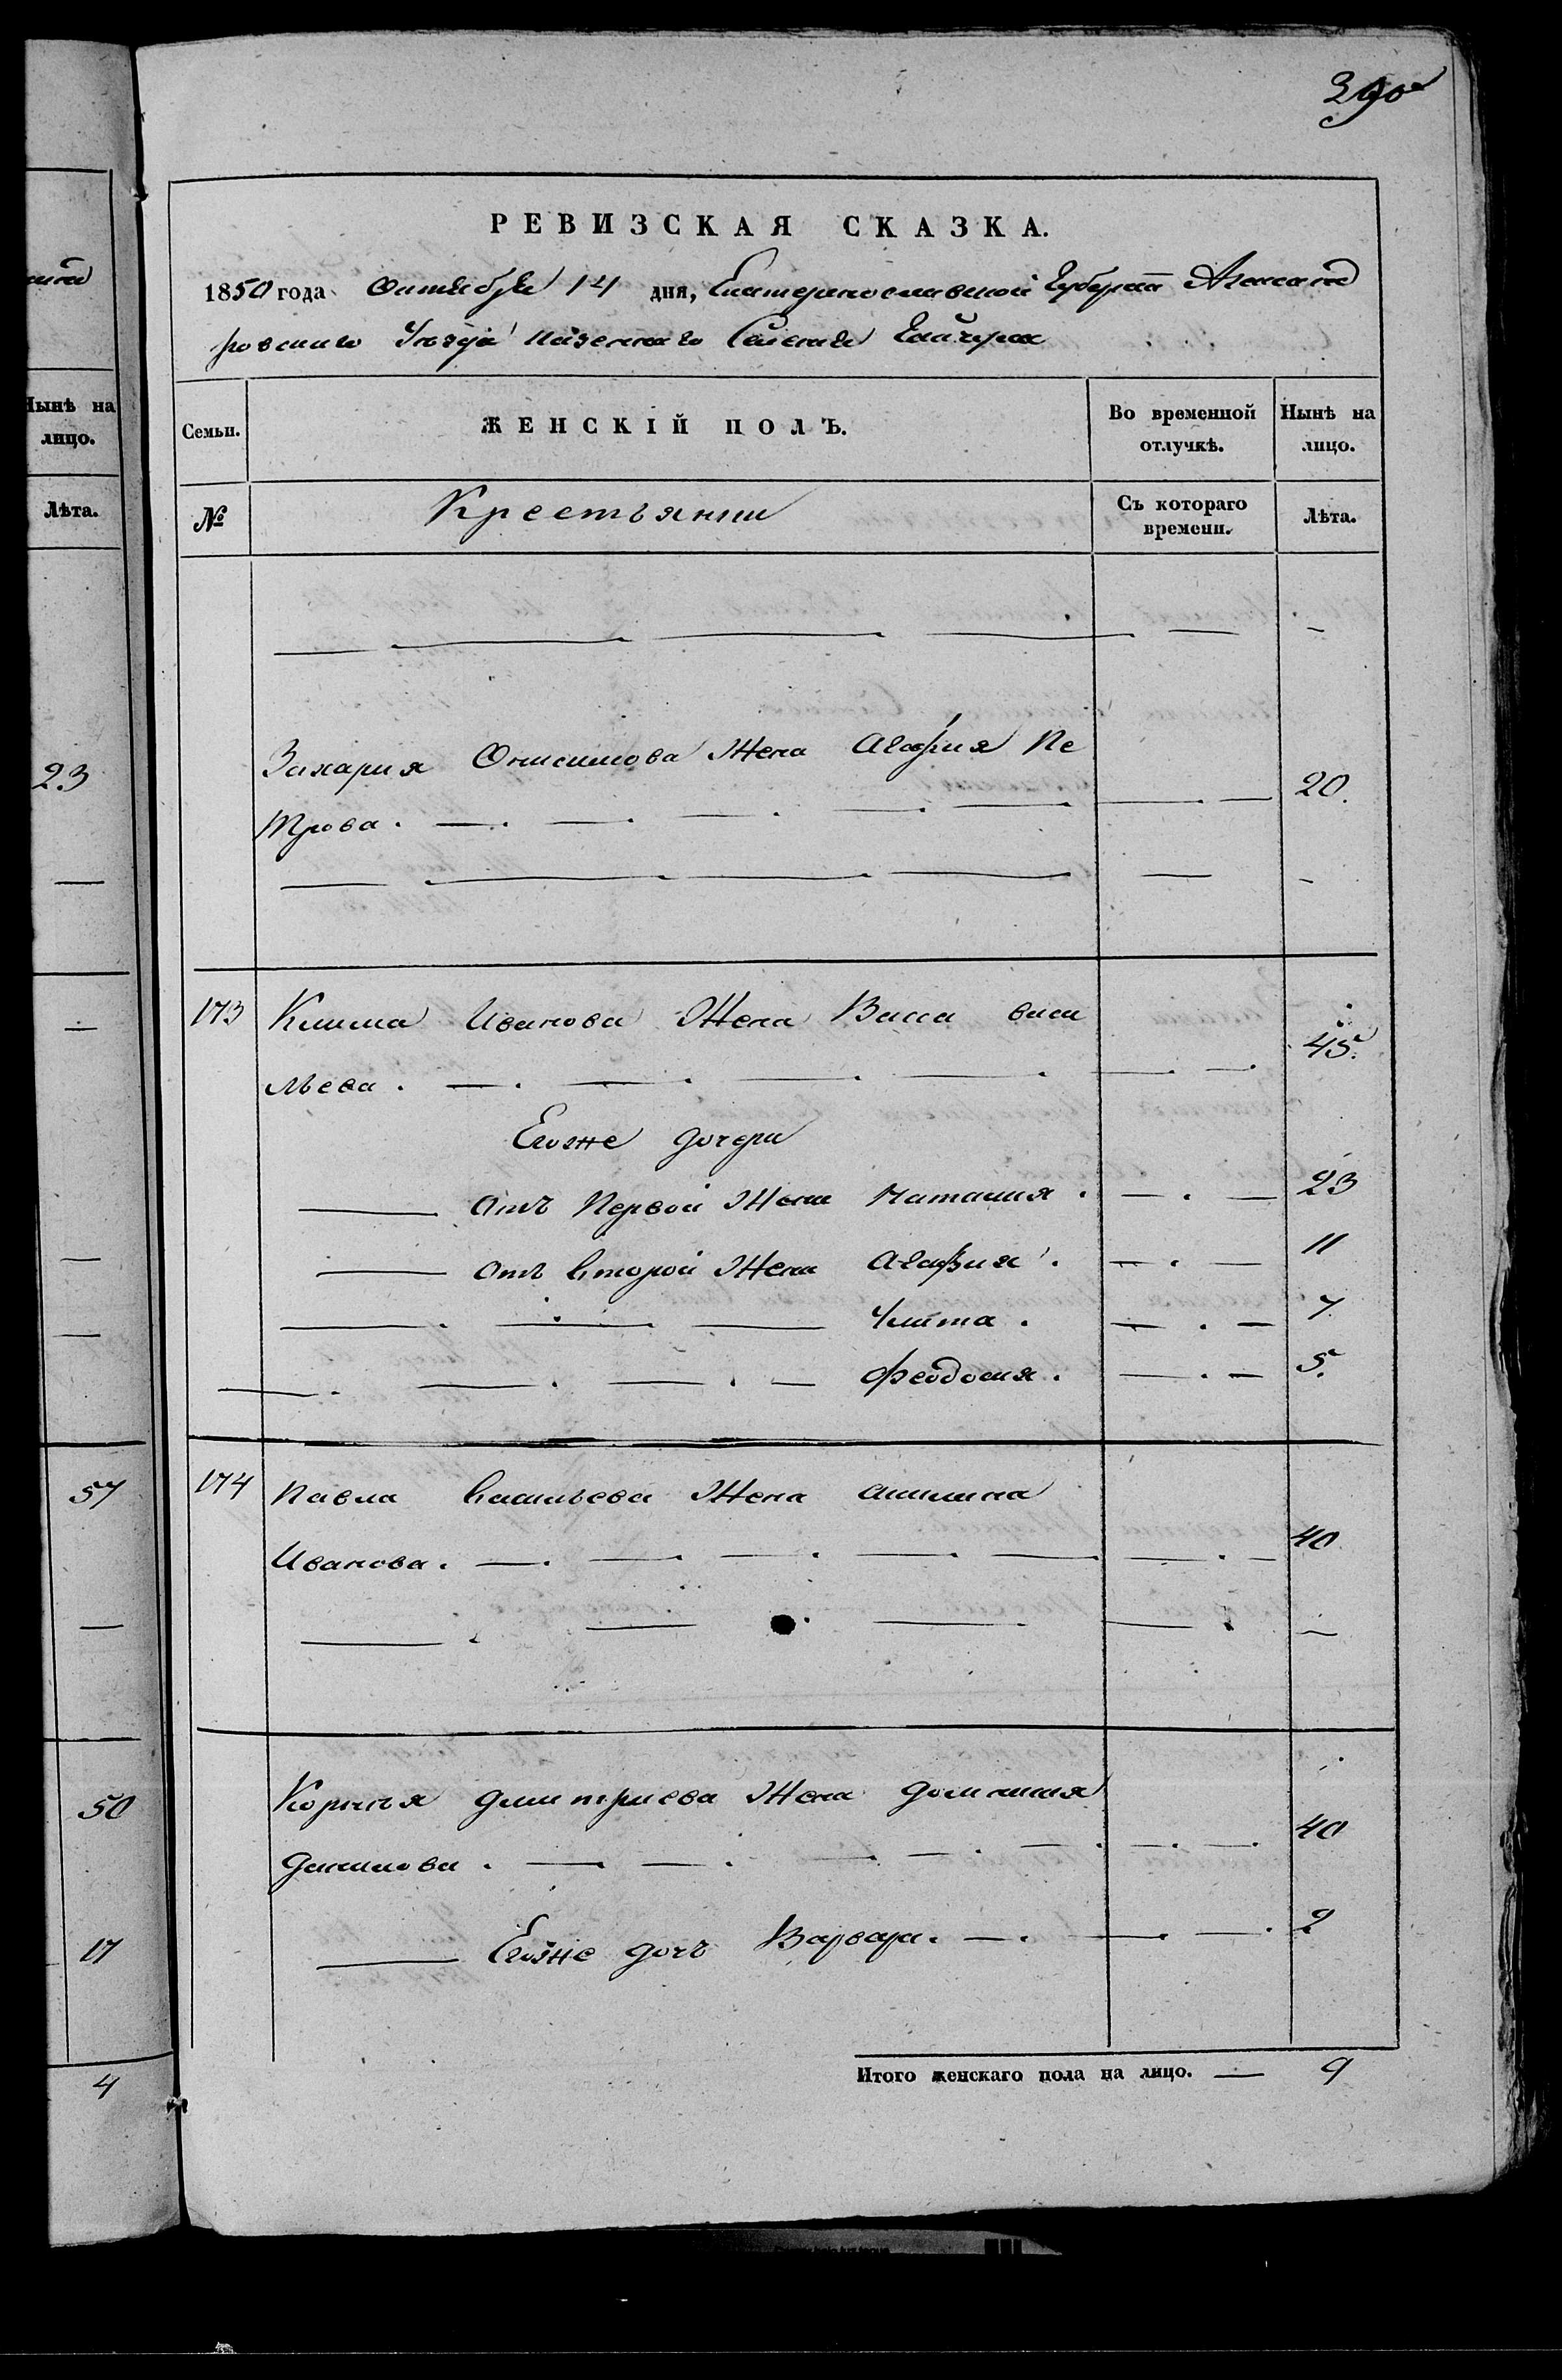 390
РЕВИЗСКАЯ СКАЗКА.
1850 года Октября 14 дня, Екатеринославской Губернии Александ
ровскаго Уезда казеннаго Селения
Нынѣ на лицо.
Лѣта.
23
57
50
17
4
Семьи. ЖЕНСКІЙ ПОЛЪ. Во временной отлучкѣ. Нынѣ на лицо.
№ Крестьянки Съ котораго времени. Лѣта.
Захария Онисимова Жена Агафия Пе
трова. 20.
173 Клима Иванова Жена Васса васи
льева. 45.
Егоже дочери
отъ Первой Жены Наталия. 23
отъ второй Жены Агафия. 11
Улита. 7.
Феодосия. 5.
174 Павла васильева Жена акилина
Иванова. 40
Корнея дмитриева Жена домникия
данилова. 40
Егоже дочъ Варвара. 2
Итого женскаго пола на лицо. 9